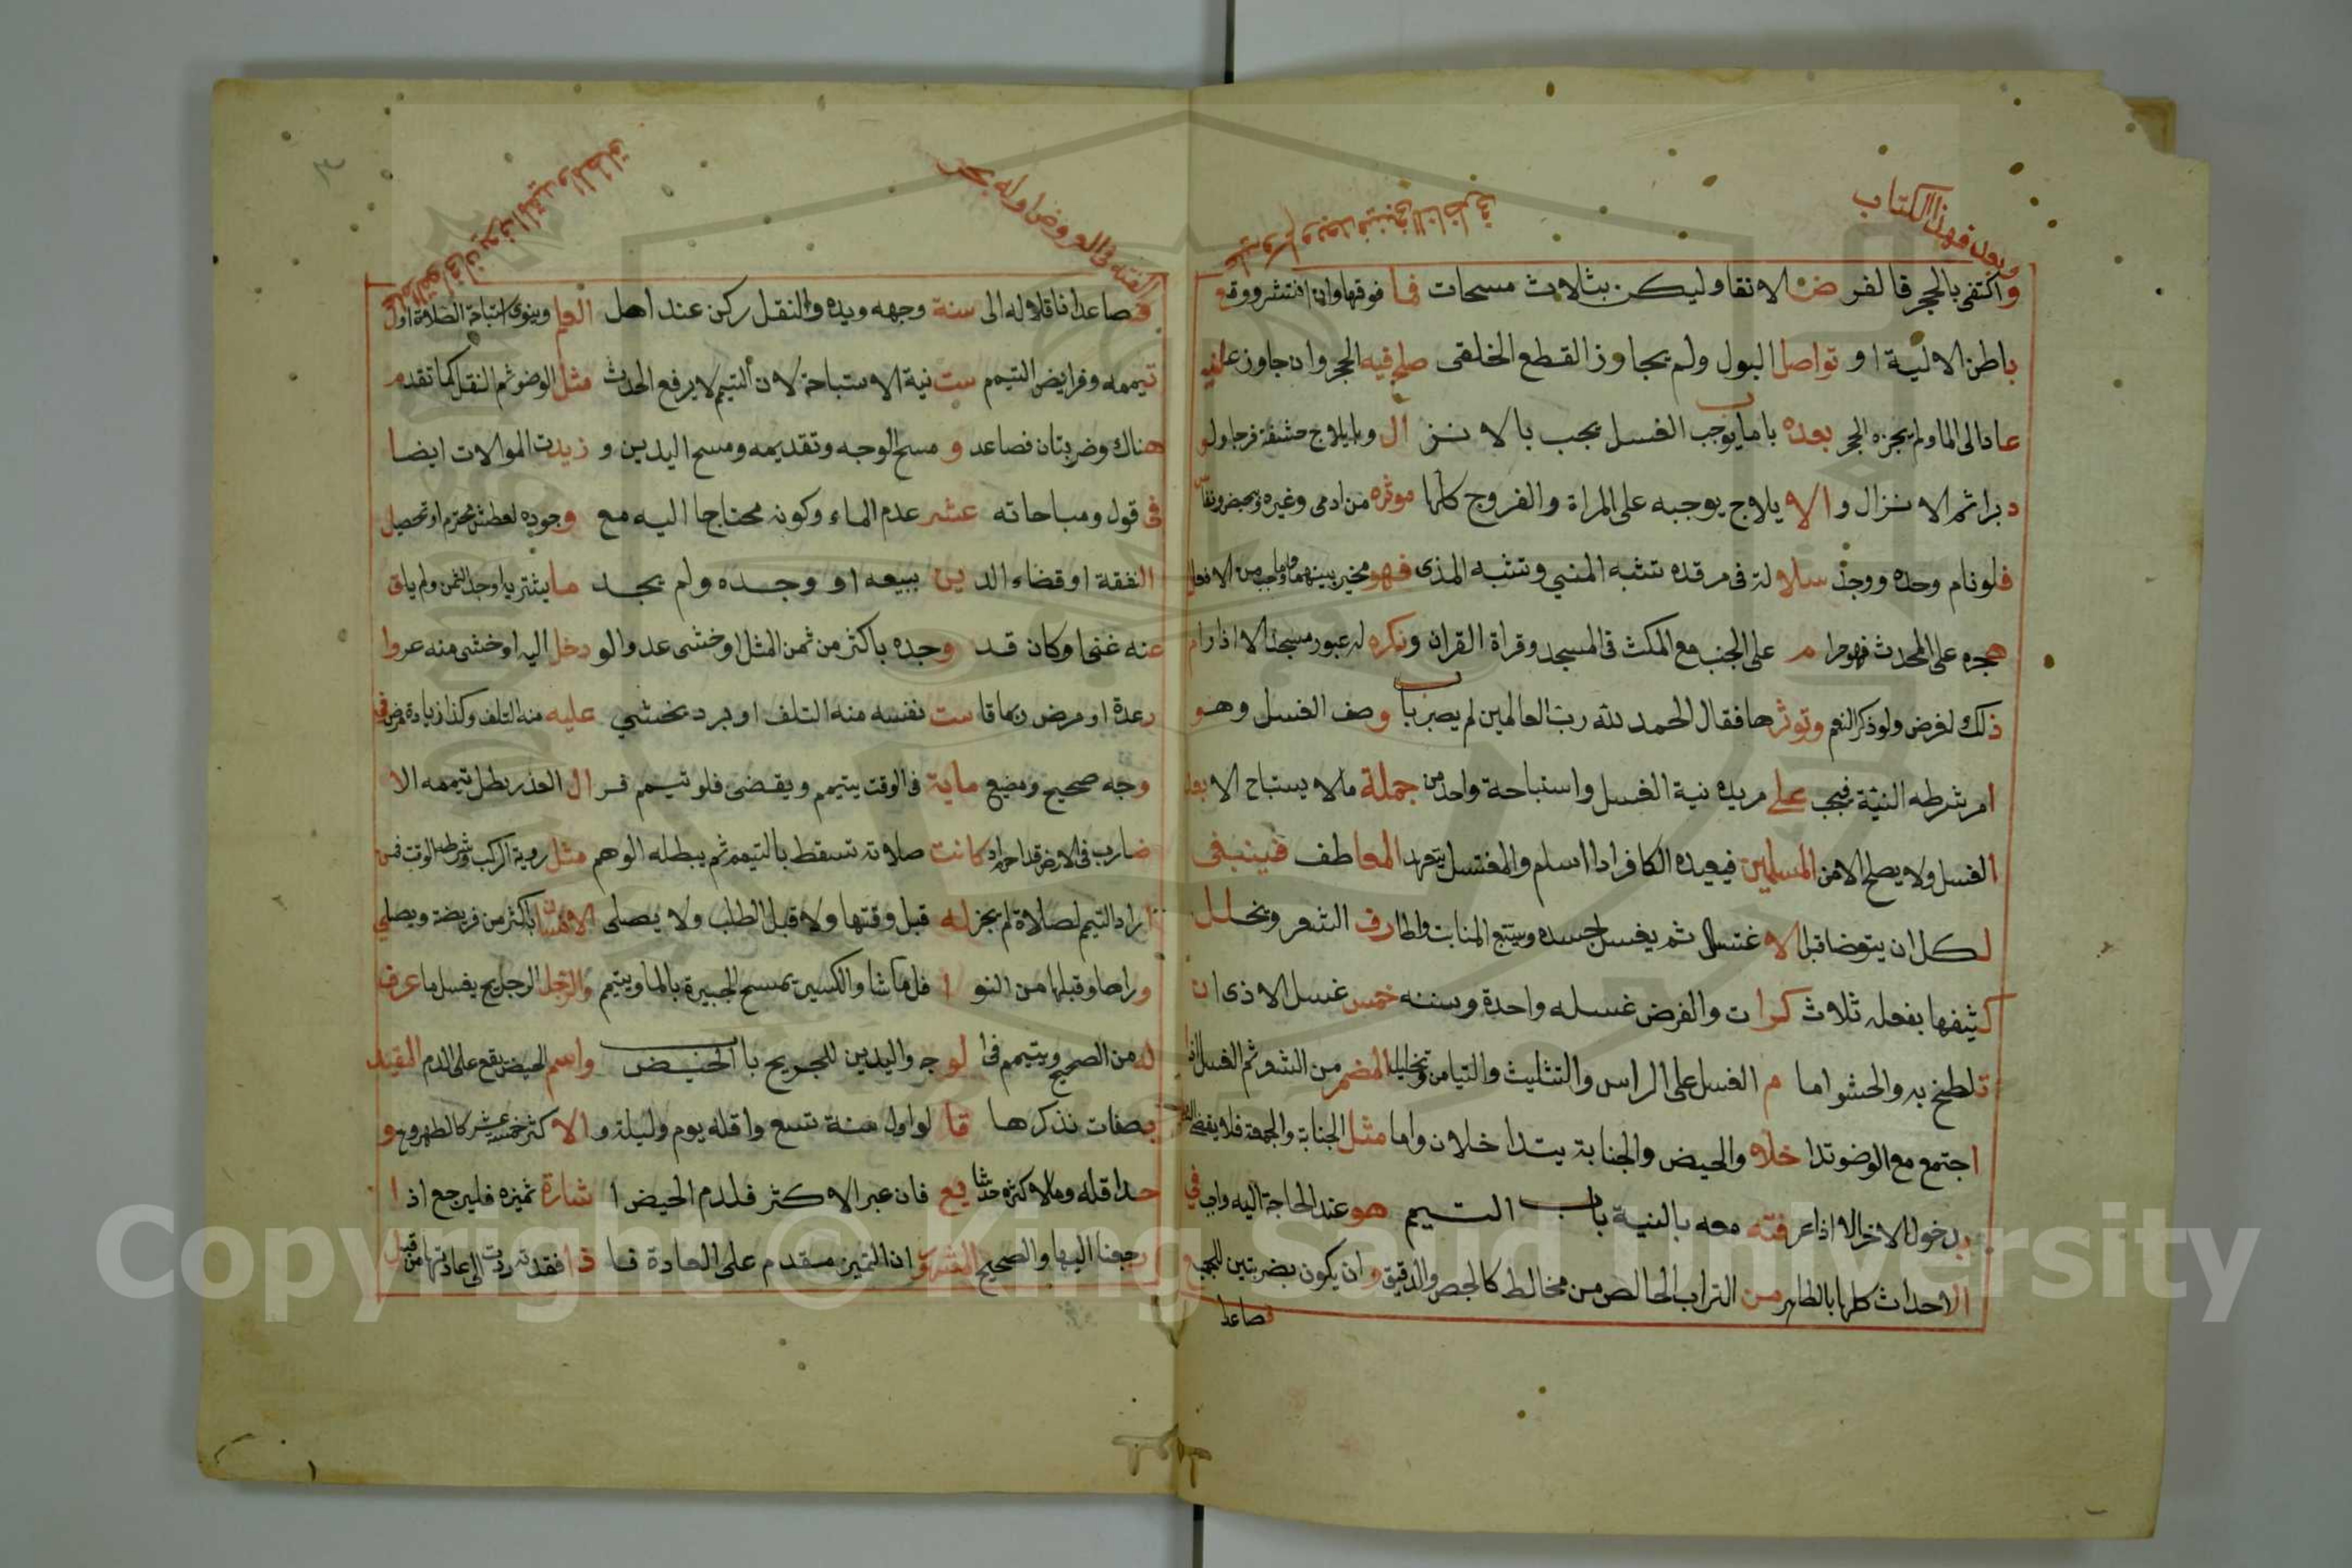 وبعد فهذا الكتاب
واكتفى بالحجر فالفرض الانقا وليكن بثلاث مسحات فما فوقها وان انتشر ووقع
باطن الالية او تواصل البول ولم يجاوز القطع الخلقى صلح فيه الحجر وان جاوز عليه
عاد الى الما ولم يجزه الحجر بعده باب ما يوجب الغسل يجب بالانزال وبايلاج حشفة فرجا ولو
دبرا ثم الانزال والايلاج يوجبه على المراة والفروج كلها موثره من ادمى وغيره وبحيض ونفاس
فلو نام وحده ووجد سلالة فى مرقده تشبه المنى وتشبه المذى فهو مخير بينهما وما يجب من الافعال
هجره على المحدث فهو حرام على الجنب مع المكث فى المسجد وقراة القران ونكره له عبور مسجدنا الا اذا رام
ذلك لغرض ولو ذكر النعم وتوثرها فقال الحمد لله رب العالمين لم يضر باب وصف الغسل وهو
امر شرطه النية فيجب على مريده نية الغسل واستباحة واحد من جملة ما لا يستباح الا بعد
الغسل ولا يصلح الا من المسلمين فيعيده الكافر اذا اسلم والمغتسل يتعهد المعاطف فينبغى
لكل ان يتوضا قبل الاغتسال ثم يغسل جسده ويتتبع المنابت واطارف الشعر ويخلل
كثيفها بفعله ثلاث كرات والفرض غسله واحدة وسننه خمس غسل الاذى ان
تلطخ به والحشو اما م الغسل على الراس والتثليث والتيامن وتخليل المضمر من الشعر ثم الغسل اذا
اجتمع مع الوضو تداخلاه والحيض والجنابة يتداخلان واما مثل الجنابة والجمعة فلا يقضى
بدخول الاخر الا اذا عرفته معه بالنية باب التيمم هو عند الحاجة اليه واجب في
الاحداث كلها بالطاهر من التراب الخالص من مخالط كالجص والدقيق وان يكون بضربتين للجميع
فصاعدا
الفقه فى العروض اوله بحر
فصاعدا ناقلا له الى سنة وجهه ويده والنقل ركن عند اهل العلم وينوى استباحة الصلاة اول
تيممه وفرايض التيمم ست نية الاستباحة لان التيمم لا يرفع الحدث مثل الوضو ثم النقل كما تقدم
هناك وضربتان فصاعد و مسح الوجه وتقديمه ومسح اليدين و زيدت الموالات ايضا
فى قول ومباحاته عشر عدم الماء وكونه محتاجا اليه مع وجوده لعطش محترم او تحصيل
النفقة او قضاء الدين ببيعه او وجده ولم يجد ما يشتريه او وجد الثمن ولم يلق
عنه غنى او كان قد وجده باكثر من ثمن المثل او خشى عدوا لو دخل اليه او خشى منه عروا
رعدة او مرض بما قاست نفسه منه التلف او برد يخشي عليه منه التلف وكذا زيادة مرض فى
وجه صحيح ومضيع ماية فى الوقت يتيمم ويقضى فلو تيمم فزال العذر بطل تيممه الا
ضارب فى الارض قد احرم اذ كانت صلاته تسقط بالتيمم ثم يبطله الوهم مثل روية الركب وشرطه الوقت فمن
اراد التيمم لصلاة لم يجز له قبل وقتها ولا قبل الطلب ولا يصلى الانسان باكثر من فريضة ويصلي
وراها وقبلها من النوا فل ما شا والكسير يمسح الجبيرة بالما ويتيمم والرجل الرجل يج يغسل ما عرف
له من الصحيح ويتيمم فى الوجه واليدين للجريح باب الحيض واسم الحيض يقع على الدم المقيد
بصفات نذكرها قالوا اول سنة تسع واقله يوم وليلة والاكثر خمسة عشر كالطهر وح و
حد اقله وما لاكثره حدثنا فع فان عبر الاكثر فلدم الحيض اشارة تميزه فليرجع اذا
رجعنا اليها والصحيح ان التميز متقدم على العادة فا ذا فقدته ردت الى عادتها من قبل
Copyright © King Saud University